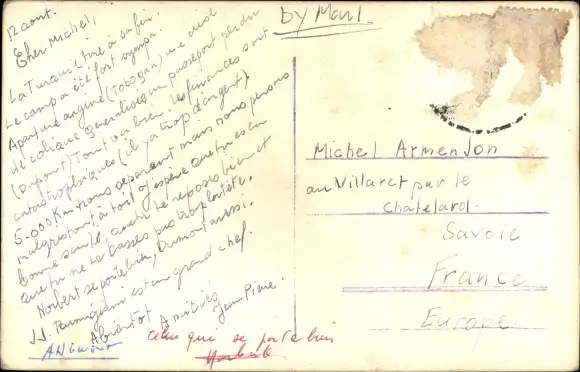 12 août.
Cher Michel,
La Turquie tire à sa fin.
Le camp a été fort sympa.
A part une angine (Tobogan), une crise
de colique généralisée, un passeport perdu
(Dupont) Tout va bien. Les finances sont
catastrophiques (il y a trop d'argent).
5.000 Km nous séparent mais nous pensons
malgré tout à toi. J'espère que tu es en
bonne santé que tu te reposes bien et
que tu ne te casses pas trop la tête.
Norbert se porte bien, Dumont aussi.
J.J. Parmigiani est un grand chef.
A bientôt Amitiés
Jean Pierre.
celui que se porte bien
Norbert
by Mail
Michel Armenjon
au Villaret par le
Chatelard.
Savoie
France
Europe